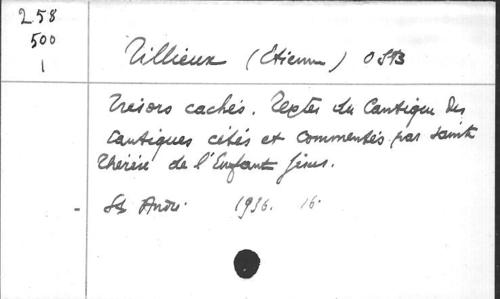 258
500
1
Tillieux (Etienne) OSB
Trésors cachés. Textes du Cantique des
Cantiques cités et commentés par Sainte
Thérèse de l'Enfant Jésus.
- St André. 1936. 16.